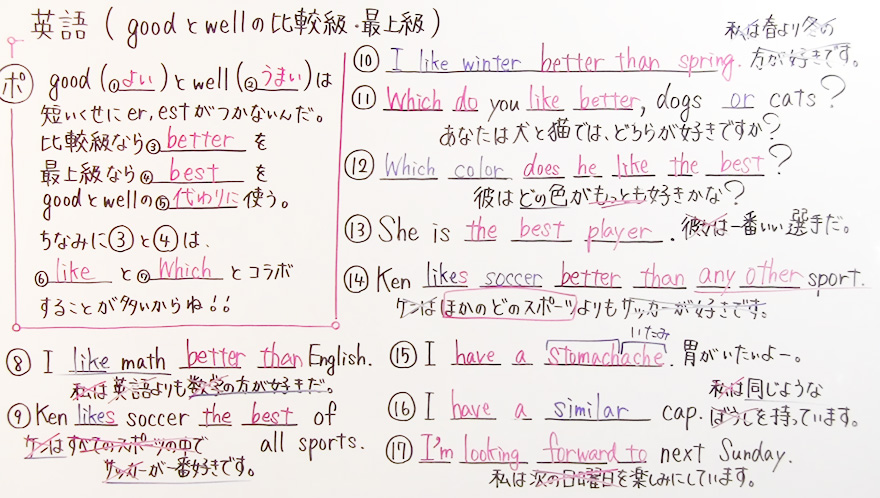 英語 (goodとwellの比較級・最上級)
ポ
good (①よい)とwell(②うまい)は
短いくせにer,estがつかないんだ。
比較級なら③betterを
最上級なら④bestを
goodとwellの⑤代わりに使う。
ちなみに③と④は、
⑥likeと⑦Whichとコラボ
することが多いからね!!
⑧ I like math better than English.
私は英語よりも数学の方が好きだ。
⑨ Ken likes soccer the best of
all sports.
ケンはすべてのスポーツの中で
サッカーが一番好きです。
私は春より冬の
⑩ I like winter better than spring. 方が好きです。
⑪ Which do you like better, dogs or cats?
あなたは犬と猫では、どちらが好きですか?
⑫ Which color does he like the best?
彼はどの色がもっとも好きかな?
⑬ She is the best player. 彼女は一番いい選手だ。
⑭ Ken likes soccer better than any other sport.
ケンはほかのどのスポーツよりもサッカーが好きです。
いたみ
⑮ I have a stomachache. 胃がいたいよー。
私は同じような
⑯ I have a similar cap. ぼうしを持っています。
⑰ I'm looking forward to next Sunday.
私は次の日曜日を楽しみにしています。